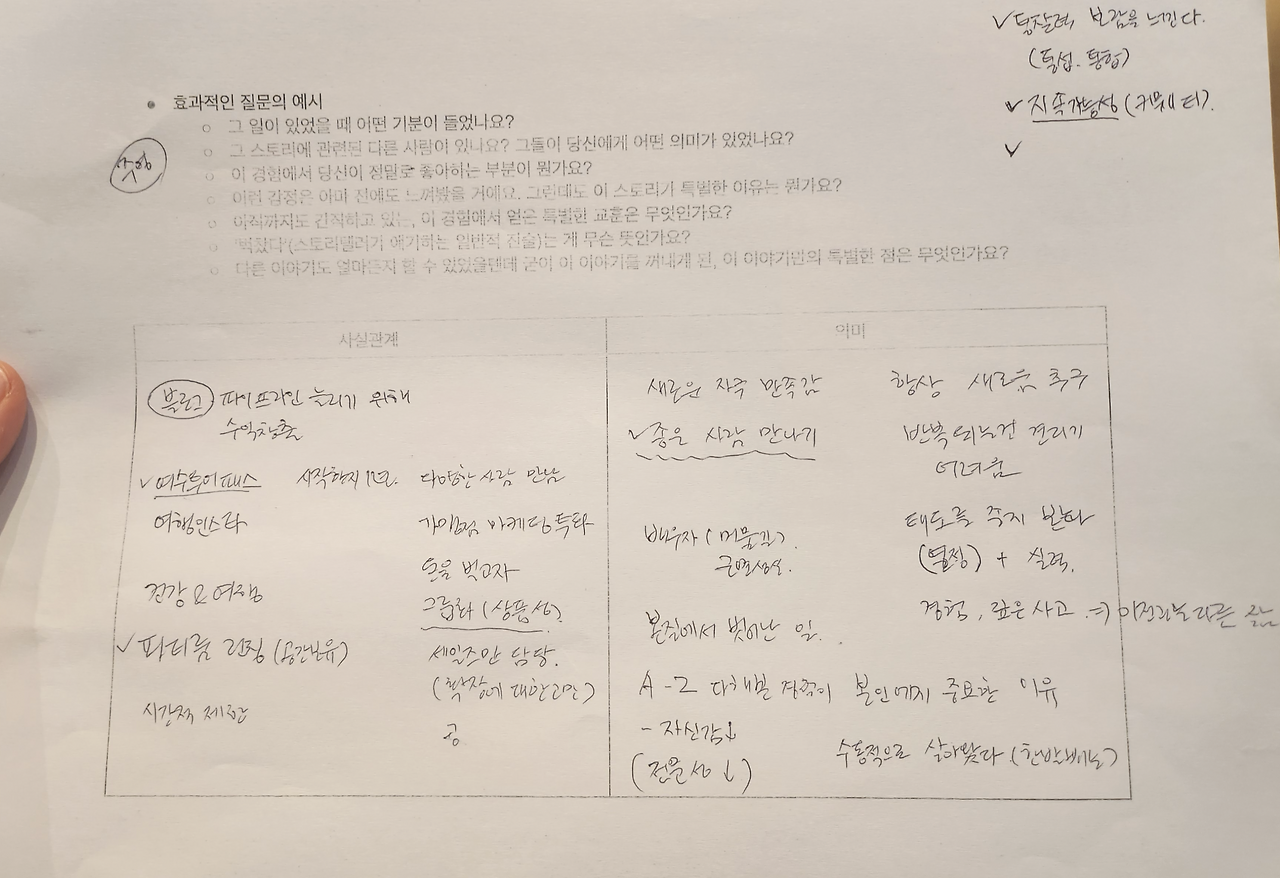 ✓통찰력 보람을 느낀다.
(통섭. 통합)
✓ 지속가능성(커뮤니티).
✓
• 효과적인 질문의 예시
○ 그 일이 있었을 때 어떤 기분이 들었나요?
○ 그 스토리에 관련된 다른 사람이 있나요? 그들이 당신에게 어떤 의미가 있었나요?
○ 이 경험에서 당신이 정말로 좋아하는 부분이 뭔가요?
○ 이런 감정은 아마 전에도 느껴봤을 거예요. 그런데도 이 스토리가 특별한 이유는 뭔가요?
○ 아직까지도 간직하고 있는, 이 경험에서 얻은 특별한 교훈은 무엇인가요?
○ '벅찼다'(스토리텔러가 얘기하는 일반적 진술)는 게 무슨 뜻인가요?
○ 다른 이야기도 얼마든지 할 수 있었을텐데 굳이 이 이야기를 꺼내게 된, 이 이야기만의 특별한 점은 무엇인가요?
사실관계
블로그 파이프라인 늘리기 위해
수익창출
✓여수투어패스 시작한지 1년. 다양한 사람 만남
여행인스타 가입점 마케팅 특화
모음 벗고자
건강 & 여행
그룹화(상품성).
✓파티룸 런칭 (공간보유) 세일즈만 담당.
(확장에 대한 고민)
시간적 제한
공
의미
새로운 자극 만족감 항상 새로움 추구
✓좋은 사람 만나기 반복되는건 견디기
어려움
배우자(머물길). 태도를 중시 한다
근면성실. (열정) + 실력.
본질에서 벗어난 일. 경험, 깊은 사고 ⇒ 이전과는 다른 삶
A-Z 다해본 경력이 본인에게 중요한 이유
- 자신감↓
(전문성↓) 수동적으로 살아왔다